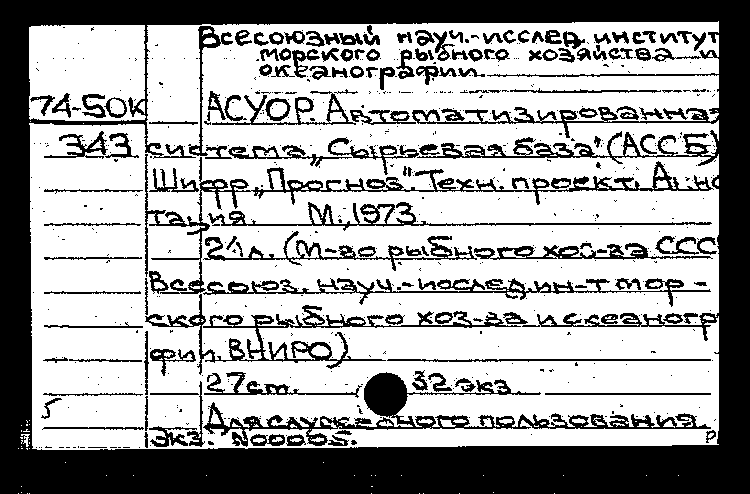 Всесоюзный науч.-исслед. институт
морского рыбного хозяйства и
океанографии.
74-50К АСУОР. Автоматизированная
343 система „Сырьевая база" (АССБ)
Шифр „Прогноз". Техн. проект. Анно
тация. М., 1973.
24л. (М-во рыбного хоз-ва СССР
Всесоюз. науч.-исслед. ин-т мор-
ского рыбного хоз-ва и океаногр
фии. ВНИРО)
27см. 32 экз.
Для служебного пользования.
экз. N00005.